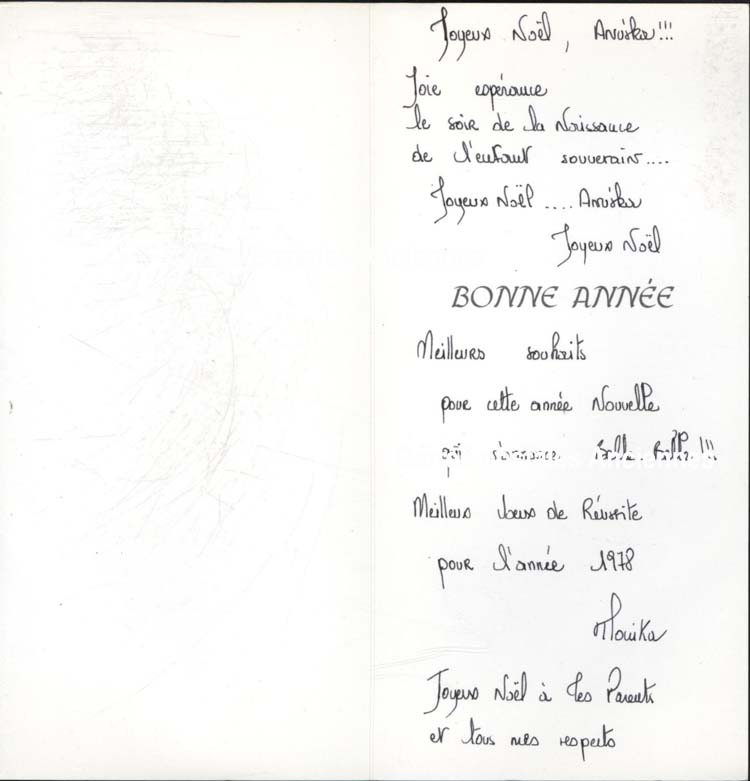 Joyeux Noël, Anuska!!!
Joie espérance
le soir de la Naissance
de l'enfant souverain....
Joyeux Noël .... Anuska
Joyeux Noël
BONNE ANNÉE
Meilleurs souhaits
pour cette année Nouvelle
qui s'annonce Belle Belle !!!
Meilleurs voeux de Réussite
pour l'année 1978
Monika
Joyeux Noël à tes Parents
et tous mes respects